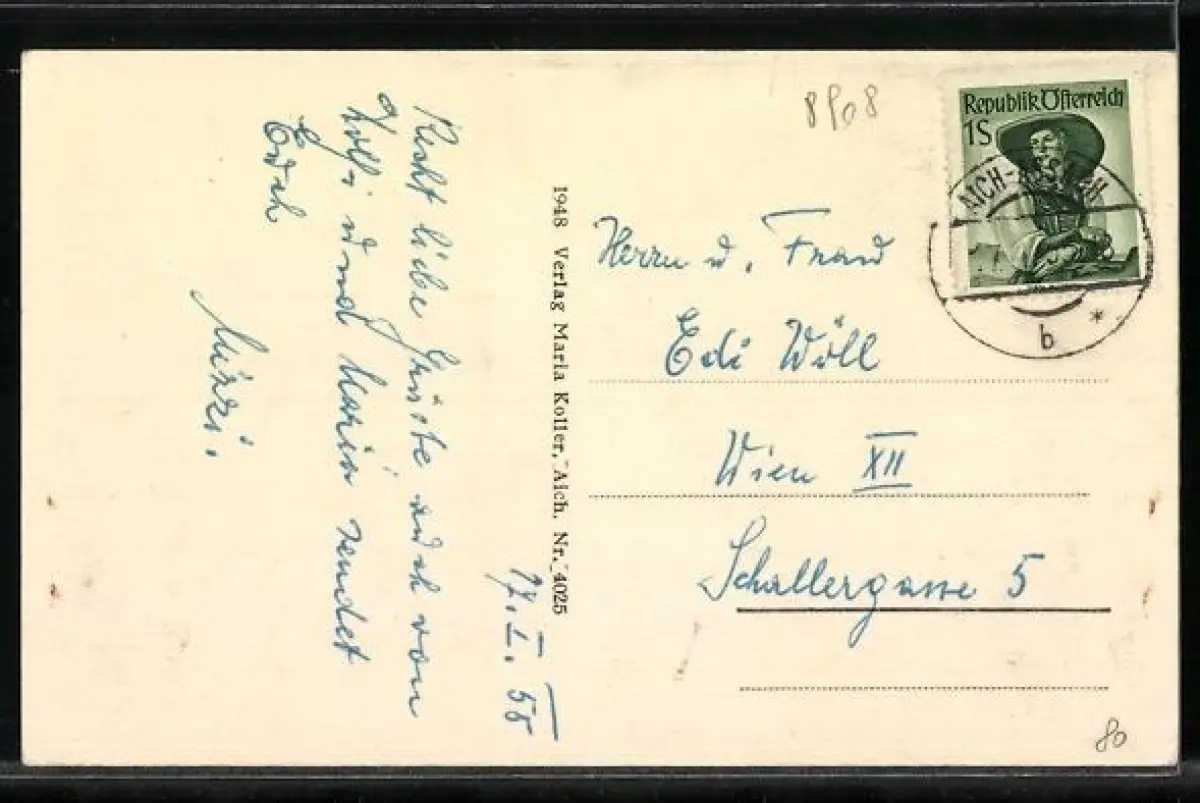 17. I. 55
Recht liebe Grüße auch von
und Maria sendet
Euch
Mizzi.
1948 Verlag Maria Koller, Aich. Nr. 4025
8908
Republik Österreich
1S
AICH-
b *
Herrn u. Frau
Edi Wöll
Wien XII
Schallergasse 5
80